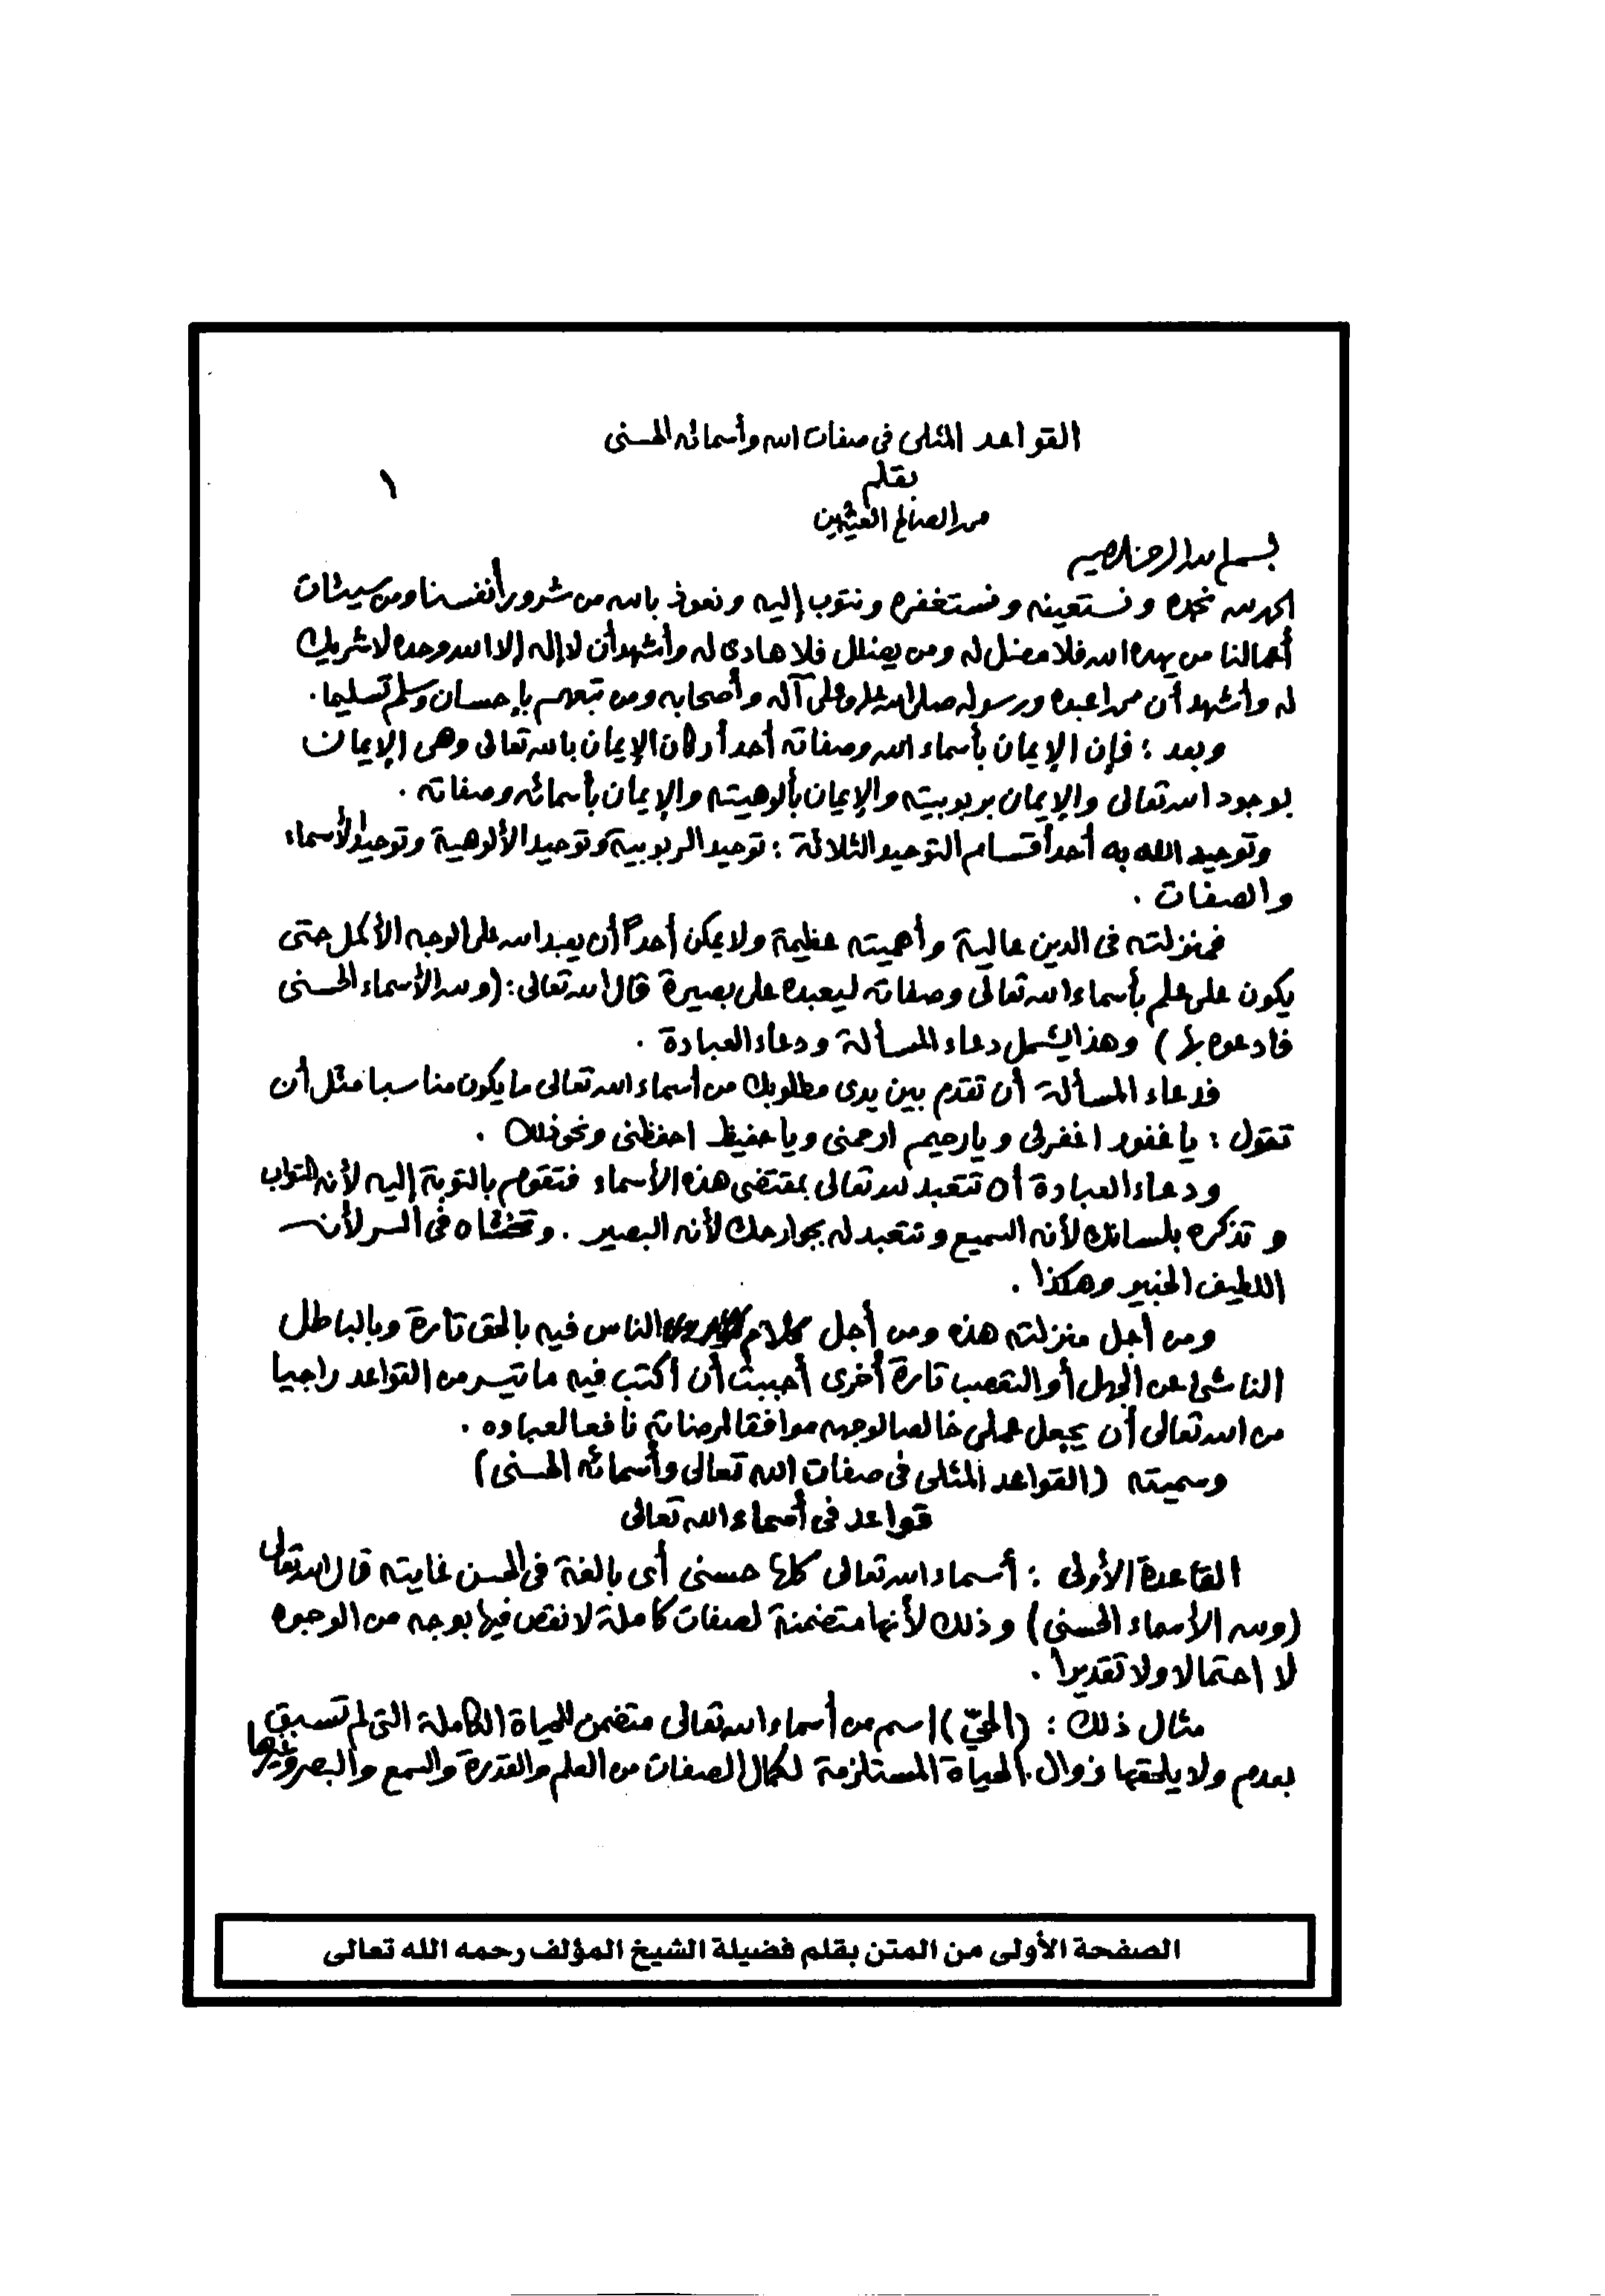 القواعد المثلى في صفات الله وأسمائه الحسنى
بقلم
١
محمد الصالح العثيمين
بسم الله الرحمن الرحيم
الحمد لله نحمده ونستعينه ونستغفره ونتوب إليه ونعوذ بالله من شرور أنفسنا ومن سيئات
أعمالنا من يهده الله فلا مضل له ومن يضلل فلا هادى له وأشهد أن لا إله إلا الله وحده لا شريك
له وأشهد أن محمدا عبده ورسوله صلى الله عليه وعلى آله وأصحابه ومن تبعهم بإحسان وسلم تسليما.
وبعد : فإن الإيمان بأسماء الله وصفاته أحد أركان الإيمان بالله تعالى وهى الإيمان
بوجود الله تعالى والإيمان بربوبيته والإيمان بألوهيته والإيمان بأسمائه وصفاته .
وتوحيد الله به أحد أقسام التوحيد الثلاثة : توحيد الربوبية وتوحيد الألوهية وتوحيد الأسماء
والصفات .
فمنزلته فى الدين عالية وأهميته عظيمة ولا يمكن أحدًا أن يعبد الله على الوجه الأكمل حتى
يكون على علم بأسماء الله تعالى وصفاته ليعبده على بصيرة قال الله تعالى : (ولله الأسماء الحسنى
فادعوه بها) وهذا يشمل دعاء المسألة ودعاء العبادة .
فدعاء المسألة أن تقدم بين يدى مطلوبك من أسماء الله تعالى ما يكون مناسبا مثل أن
تقول : يا غفور اغفر لى ويا رحيم ارحمنى ويا حفيظ احفظنى ونحو ذلك .
ودعاء العبادة أن تتعبد لله تعالى بمقتضى هذه الأسماء فتقوم بالتوبة إليه لأنه التواب
وتذكره بلسانك لأنه السميع وتتعبد له بجوارحك لأنه البصير . وتخشاه فى السر لأنه
اللطيف الخبير وهكذا .
ومن أجل منزلته هذه ومن أجل كلام الناس فيه بالحق تارة وبالباطل
الناشئ عن الجهل أو التعصب تارة أخرى أحببت أن أكتب فيه ما تيسر من القواعد راجيا
من الله تعالى أن يجعل عملى خالصا لوجهه موافقا لمرضاته نافعا لعباده .
وسميته (القواعد المثلى فى صفات الله تعالى وأسمائه الحسنى)
قواعد فى أسماء الله تعالى
القاعدة الأولى : أسماء الله تعالى كلها حسنى أى بالغة فى الحسن غايته قال الله تعالى
(ولله الأسماء الحسنى) وذلك لأنها متضمنة لصفات كاملة لا نقص فيها بوجه من الوجوه
لا احتمالا ولا تقديرا .
مثال ذلك : (الحيّ) اسم من أسماء الله تعالى متضمن للحياة الكاملة التى لم تسبق
بعدم ولا يلحقها زوال . الحياة المستلزمة لكمال الصفات من العلم والقدرة والسمع والبصر وغيرها
الصفحة الأولى من المتن بقلم فضيلة الشيخ المؤلف رحمه الله تعالى